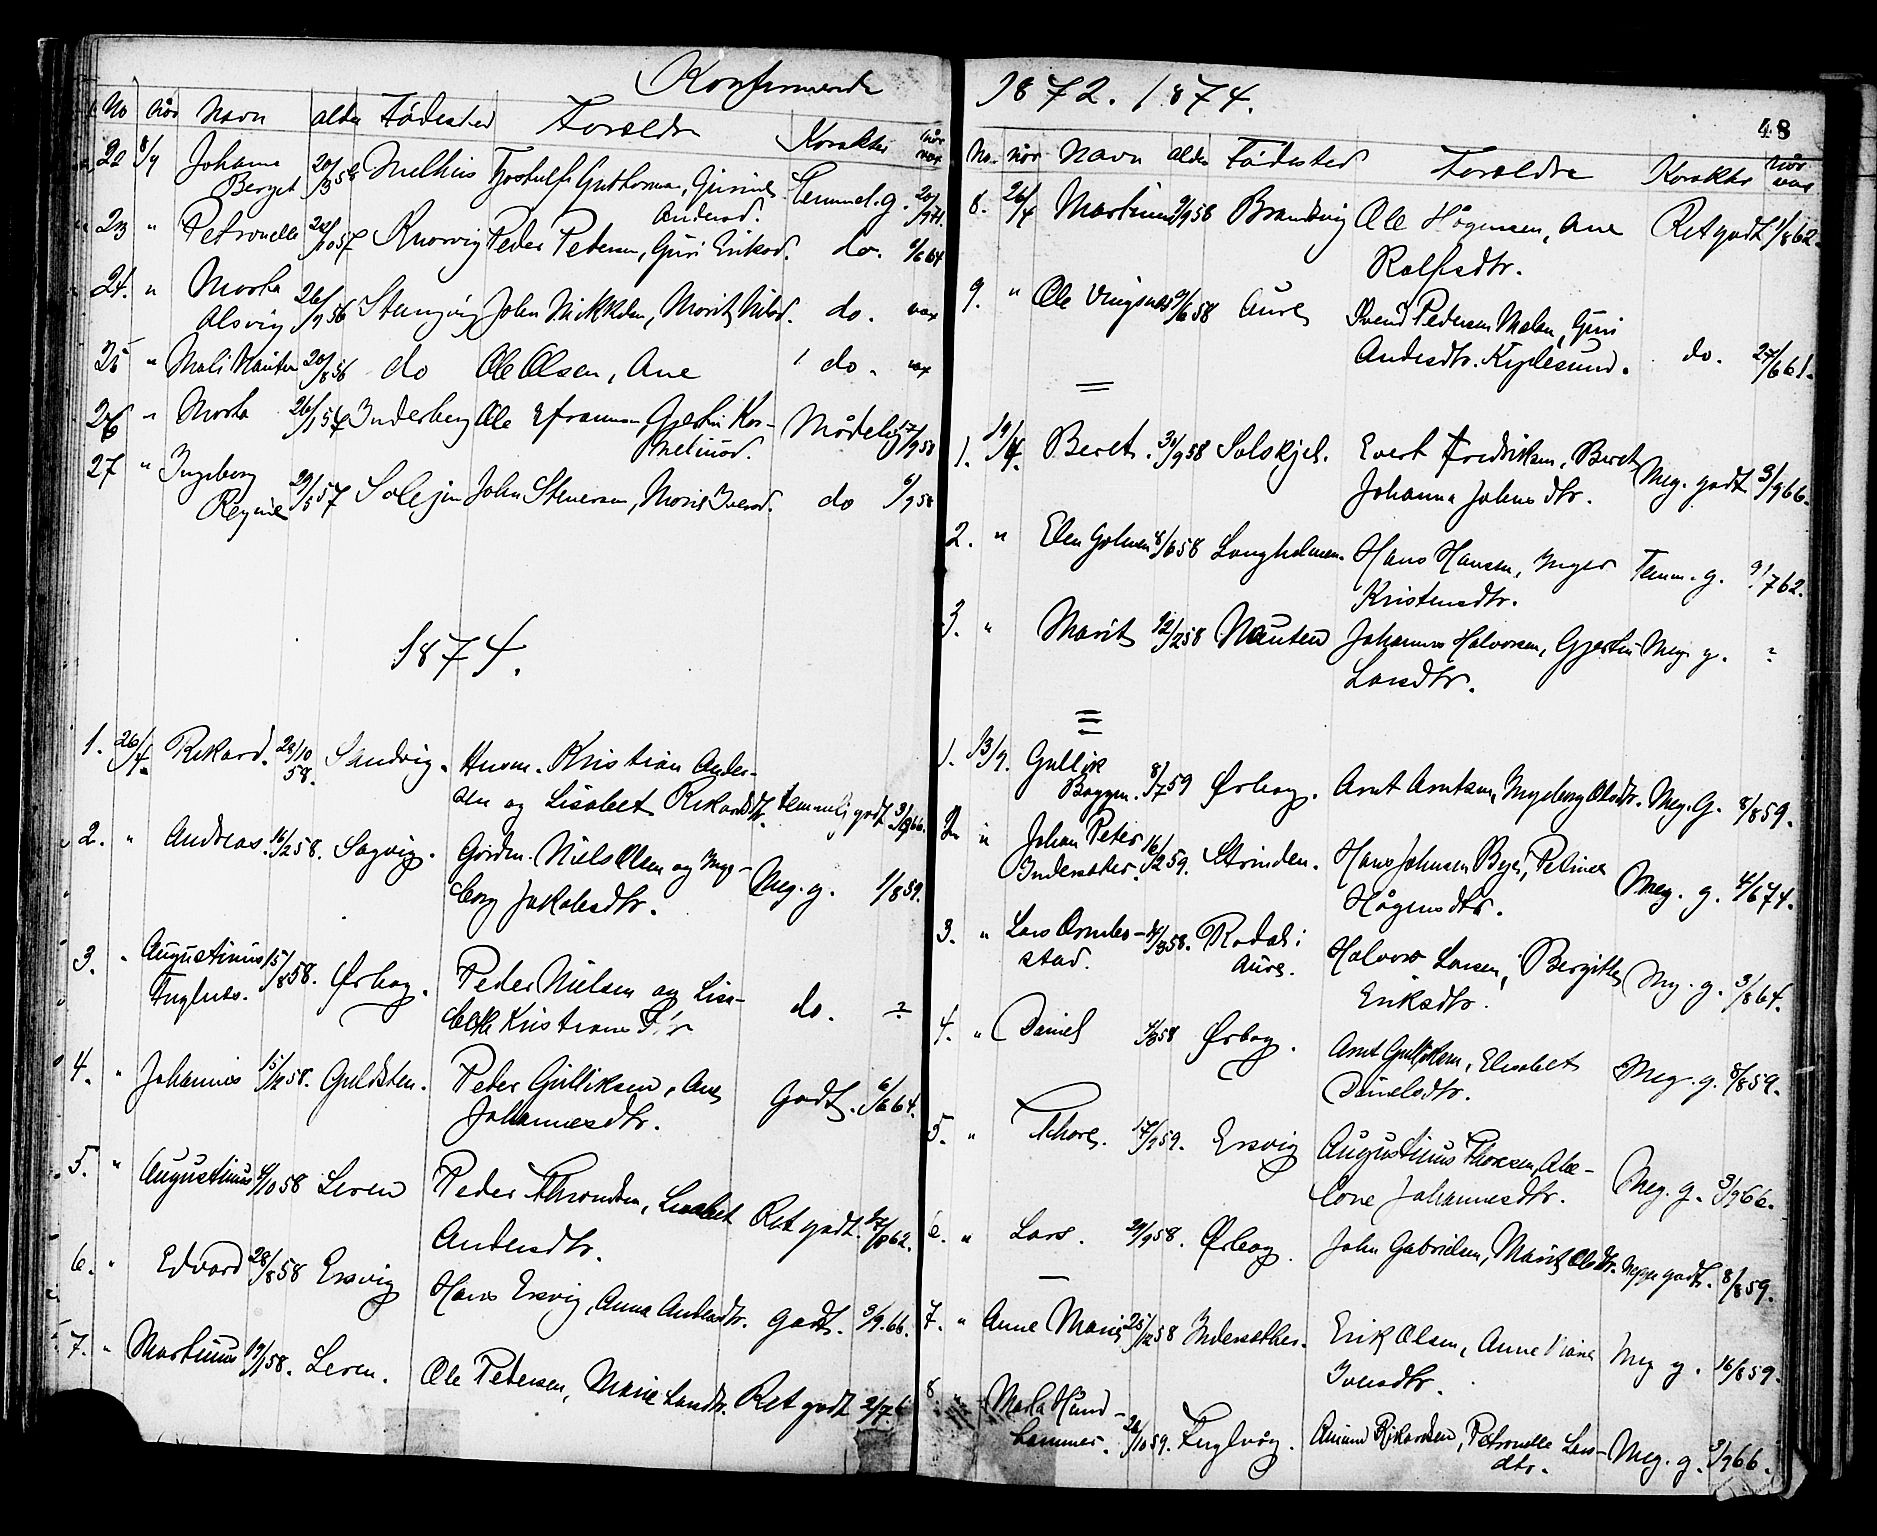 Konfirmerede
No når Navn alder Fødested Foreldre Karakter når vax
22 8/9 Johanna 20/3 58 Melhus Tjostulf Guthorms, Guruned Temmel. g. 20/9 71.
Berget Andersd.
23 " Petronelle 24/10 57 Knorvig Peder Petersen, Guri Eriksd. do. 6/6 64
24. " Marta 26/9 56 Stemvig John Mikkelsen, Marit Nilsd. do. vax
Alsvig
25 " Mali Nauten 20/8 56 do Ole Olsen, Ane do. vax
26 " Marta 26/1 57 Inderberg Ole Efraimsen, Gjertru Kor- Mådelig 17/9 58
neliusd.
27 " Ingeborg 29/5 57 Solejen John Stenersen, Marit Iversd. do 6/9 58
Regine
1874.
1. 26/4. Rikard. 28/10 58. Sandvig. Husm. Kristian Ander-
sen og Lisabet Rikardsdtr. temmeli godt 3/9 66.
2. " Andreas. 16/2 58. Sagvig. Gårdm. Niels Olsen og Inge-
borg Jakobsdtr. Meg. g. 1/8 59.
3. " Augustinus 15/8 58. Ørbog. Peder Nielsen og Lisa-
Fuglnes. beth Kristians Dtr do. ?
4. " Johannes 15/12 58. Guldsten. Peder Gulliksen, Ane
Johannesdtr. Godt. 6/6 64.
5. " Augustinus 4/10 58 Leren Peder Throndsen, Lisabet
Andersdtr. Ret godt. 17/8 62.
6. " Edvard 28/8 58 Ersvig Hans Ersvig, Anna Andersdtr. Godt. 3/9. 66.
7. " Martinus 19/1 58. Leren. Ole Petersen, Marie Larsdtr. Ret godt 2/7. 6
1872. 1874.
48
No. når Navn alder Fødested Foreldre Karakter når vax
8. 26/4 Martinus 9/9 58 Brandvig Ole Hågensen, Ane Ret godt 1/8 62.
Rolfsdtr.
9. " Ole Vingsnes 9/6 58 Aure Svend Pedersen Malen, Guri
Andersdtr. Kjølesund. do. 27/6 61.
1. 19/4. Beret. 30/9 58 Solskjel. Evert Fredriksen, Beret
Johanna Johnsdtr. Meg. godt 3/9 66.
2. " Elen Golmen 8/6 58 Langholmen. Hans Hansen, Inger Temm. g. 9/7 62.
Kristensdtr.
3. " Marit 12/2 58 Nauten Johannes Halvorsen, Gjertru Meg. g. ?
Larsdtr.
1. 13/9. Gullik
Baggen. 8/7 59 Ørbog. Arnt Arntsen, Ingeborg Olsdtr. Meg. G. 8/8 59.
2. " Johan Peter
Indersæter. 16/2 59. Strinden. Hans Johnsen Bye, Petrine
Hågensdtr. Meg. g. 4/6 74.
3. " Lars Ormbo- 4/8 58. Rodal i Halvor Larsen, Bergitte Mg. g. 3/8 64.
stad. Aure. Eriksdtr.
4. " Daniel 4/8 58 Ørbog. Arnt Gulliksen, Elisabet
Danielsdtr. Meg. g. 8/8 59.
5. " Thore. 17/2 59. Ersvig Augustinus Thoresen, Abe-
lone Johannesdtr. Meg. g. 3/9 66.
6. " Lars. 29/9 58. Ørbog. John Gabrielsen, Marit Olsdtr. Meget godt. 8/8 59.
7. " Anne Marie 25/12 58 Indersether. Erik Olsen, Anne Meg g. 16/8 59.
Iversdtr.
8 " Marta Hand-
hammer. 20/10 59. Fuglvåg. Amund Rikardsen, Petronelle Lars- Meg. g. 3/9 66.
dtr.